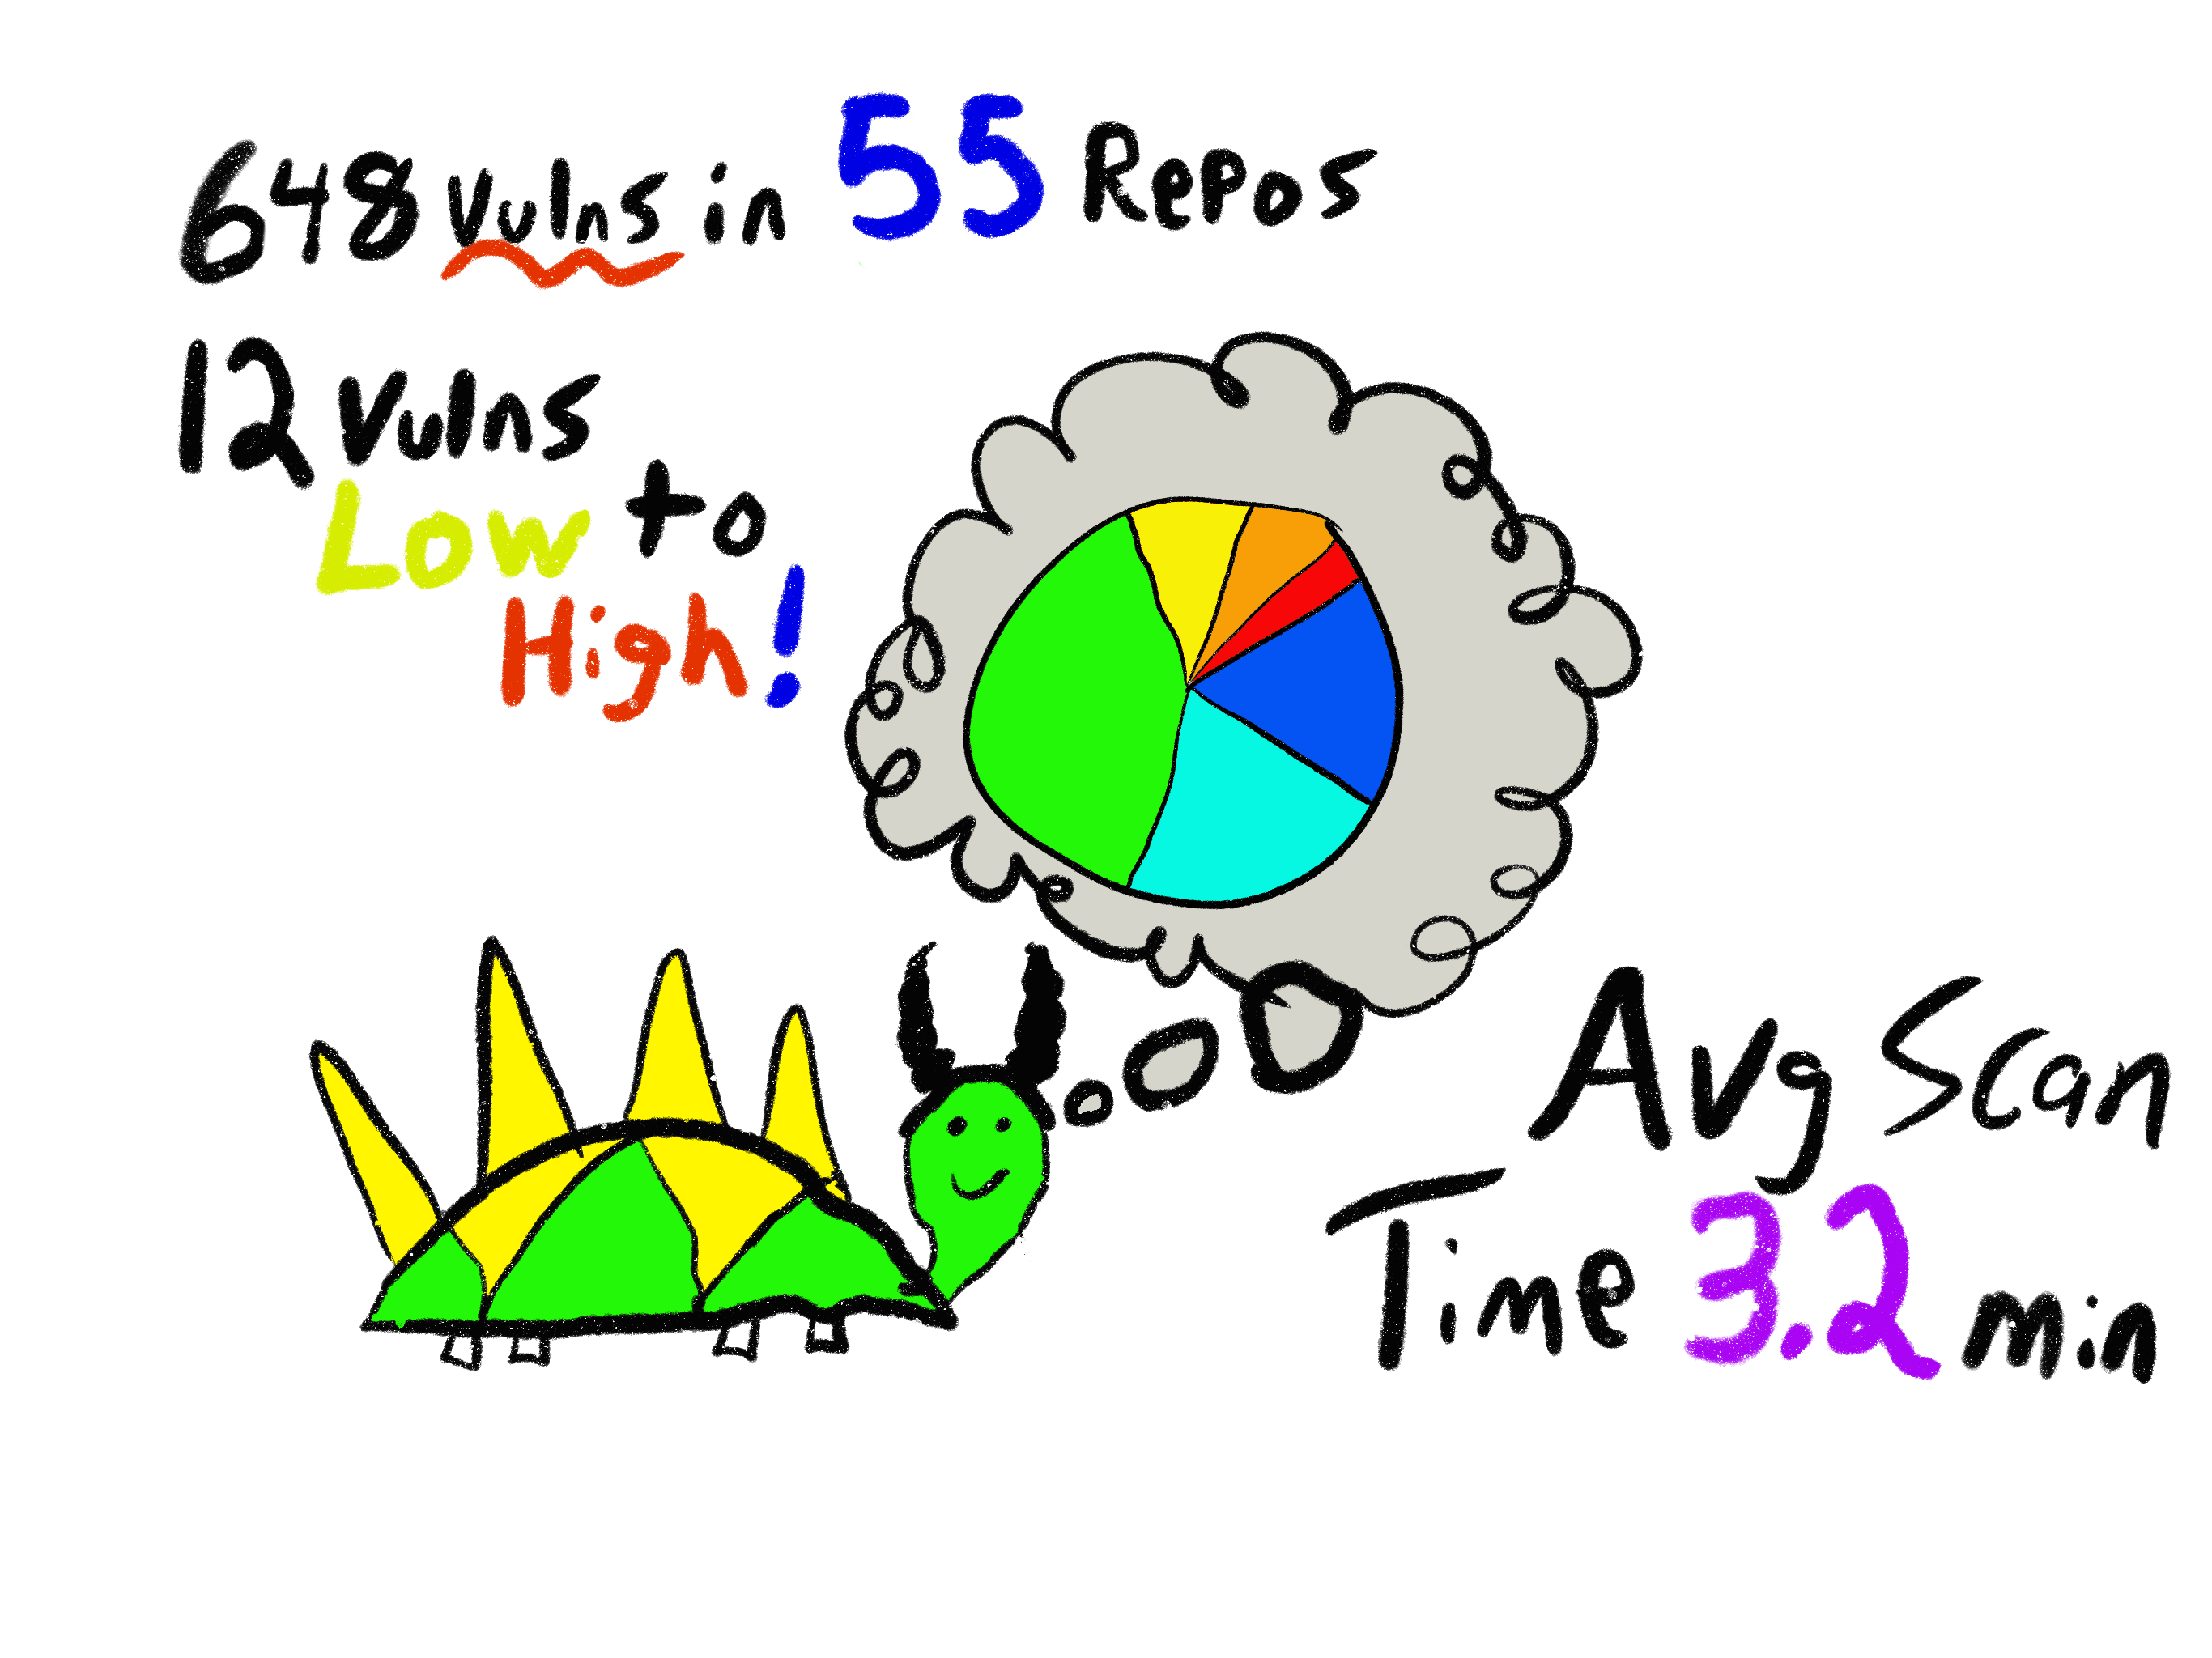 648 Vulns in 55 Repos
12 Vulns
Low to
High!
Avg Scan
Time 3.2 min